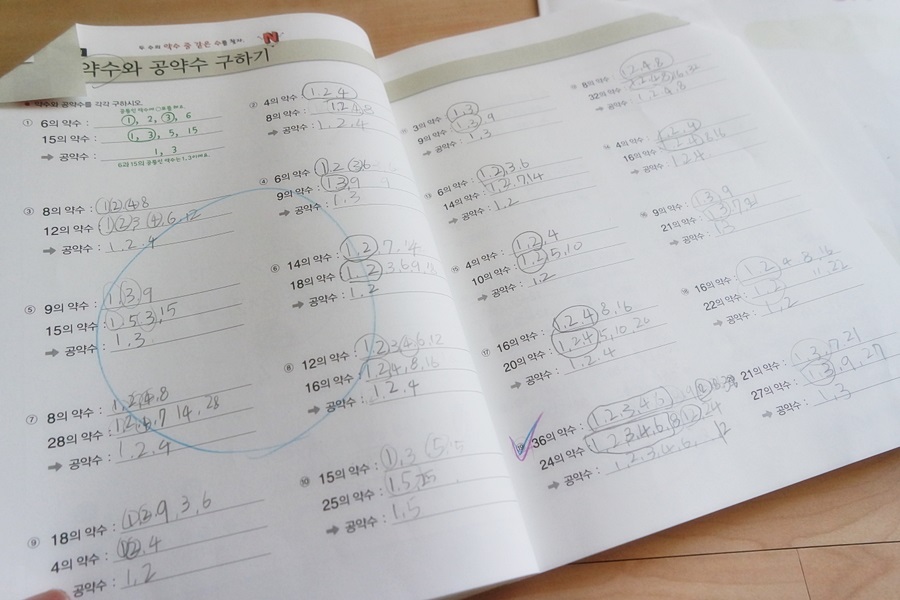 두 수의 약수 중 같은 수를 찾자.
약수와 공약수 구하기
약수와 공약수를 각각 구하시오.
① 6의 약수 : 1, 2, 3, 6
15의 약수 : 1, 3, 5, 15
➡ 공약수 : 1, 3
② 4의 약수 : 1, 2, 4
8의 약수 : 1, 2, 4, 8
➡ 공약수 : 1, 2, 4
③ 8의 약수 : 1, 2, 4, 8
12의 약수 : 1, 2, 3, 4, 6, 12
➡ 공약수 : 1, 2, 4
④ 6의 약수 : 1, 2, 3, 6
9의 약수 : 1, 3, 9
➡ 공약수 : 1, 3
⑤ 9의 약수 : 1, 3, 9
15의 약수 : 1, 5, 3, 15
➡ 공약수 : 1, 3
⑥ 14의 약수 : 1, 2, 7, 14
18의 약수 : 1, 2, 3, 6, 9,
➡ 공약수 : 1, 2
⑦ 8의 약수 : 1, 2, 4, 8
28의 약수 : 1, 2, 4, 7, 14, 28
➡ 공약수 : 1, 2, 4
⑧ 12의 약수 : 1, 2, 3, 4, 6, 12
16의 약수 : 1, 2, 4, 8, 16
➡ 공약수 : 1, 2, 4
⑨ 18의 약수 : 1, 2, 9, 3, 6
4의 약수 : 1, 2, 4
공약수 : 1, 2
⑩ 15의 약수 : 1, 3, 5
25의 약수 : 1, 5, 25
➡ 공약수 : 1, 5
3의 약수 : 1, 3
9의 약수 : 1, 3, 9
➡ 공약수 : 1, 3
8의 약수 : 1, 2, 4, 8
32의 약수 : 1, 2, 4, 8, 16, 32
➡ 공약수 : 1, 2, 4, 8
⑬ 6의 약수 : 1, 2, 3, 6
14의 약수 : 1, 2, 7, 14
➡ 공약수 : 1, 2
4의 약수 : 1, 2, 4
16의 약수 : 1, 2, 4, 8, 16
➡ 공약수 : 1, 2, 4
⑮ 4의 약수 : 1, 2, 4
10의 약수 : 1, 2, 5, 10
➡ 공약수 : 1, 2
9의 약수 : 1, 3, 9
21의 약수 : 1, 3, 7, 21
➡ 공약수 : 1, 3
⑰ 16의 약수 : 1, 2, 4, 8, 16
20의 약수 : 1, 2, 4, 5, 10, 20
➡ 공약수 : 1, 2, 4
16의 약수 : 1, 2, 4, 8, 16
22의 약수 : 1, 2, 11, 22
➡ 공약수 : 1, 2
36의 약수 : 1, 2, 3, 4, 6
24의 약수 : 1, 2, 3, 4, 6, 8, 12, 24
➡ 공약수 : 1, 2, 3, 4, 6, 12
21의 약수 : 1, 3, 7, 21
27의 약수 : 1, 3, 9, 27
➡ 공약수 : 1, 3